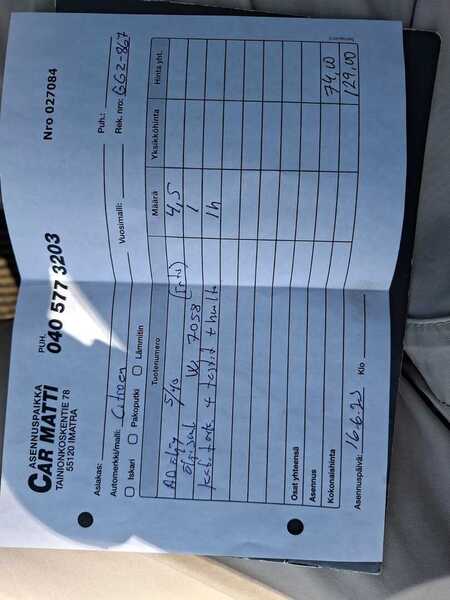 ASENNUSPAIKKA
CAR MATTI
TAINIONKOSKENTIE 78
55120 IMATRA
PUH.
040 577 3203
Nro 027084
Asiakas: Puh.:
Automerkki/malli: Citroen Vuosimalli: Rek. nro: GGZ-867
Iskari Pakoputki Lämmitin
Tuotenumero Määrä Yksikköhinta Hinta yht.
5/40 4,5
W 7058 1
+ huolto 1h
Osat yhteensä
Asennus 74,00
Kokonaishinta 129,00
Asennuspäivä: 16.6.23 Klo